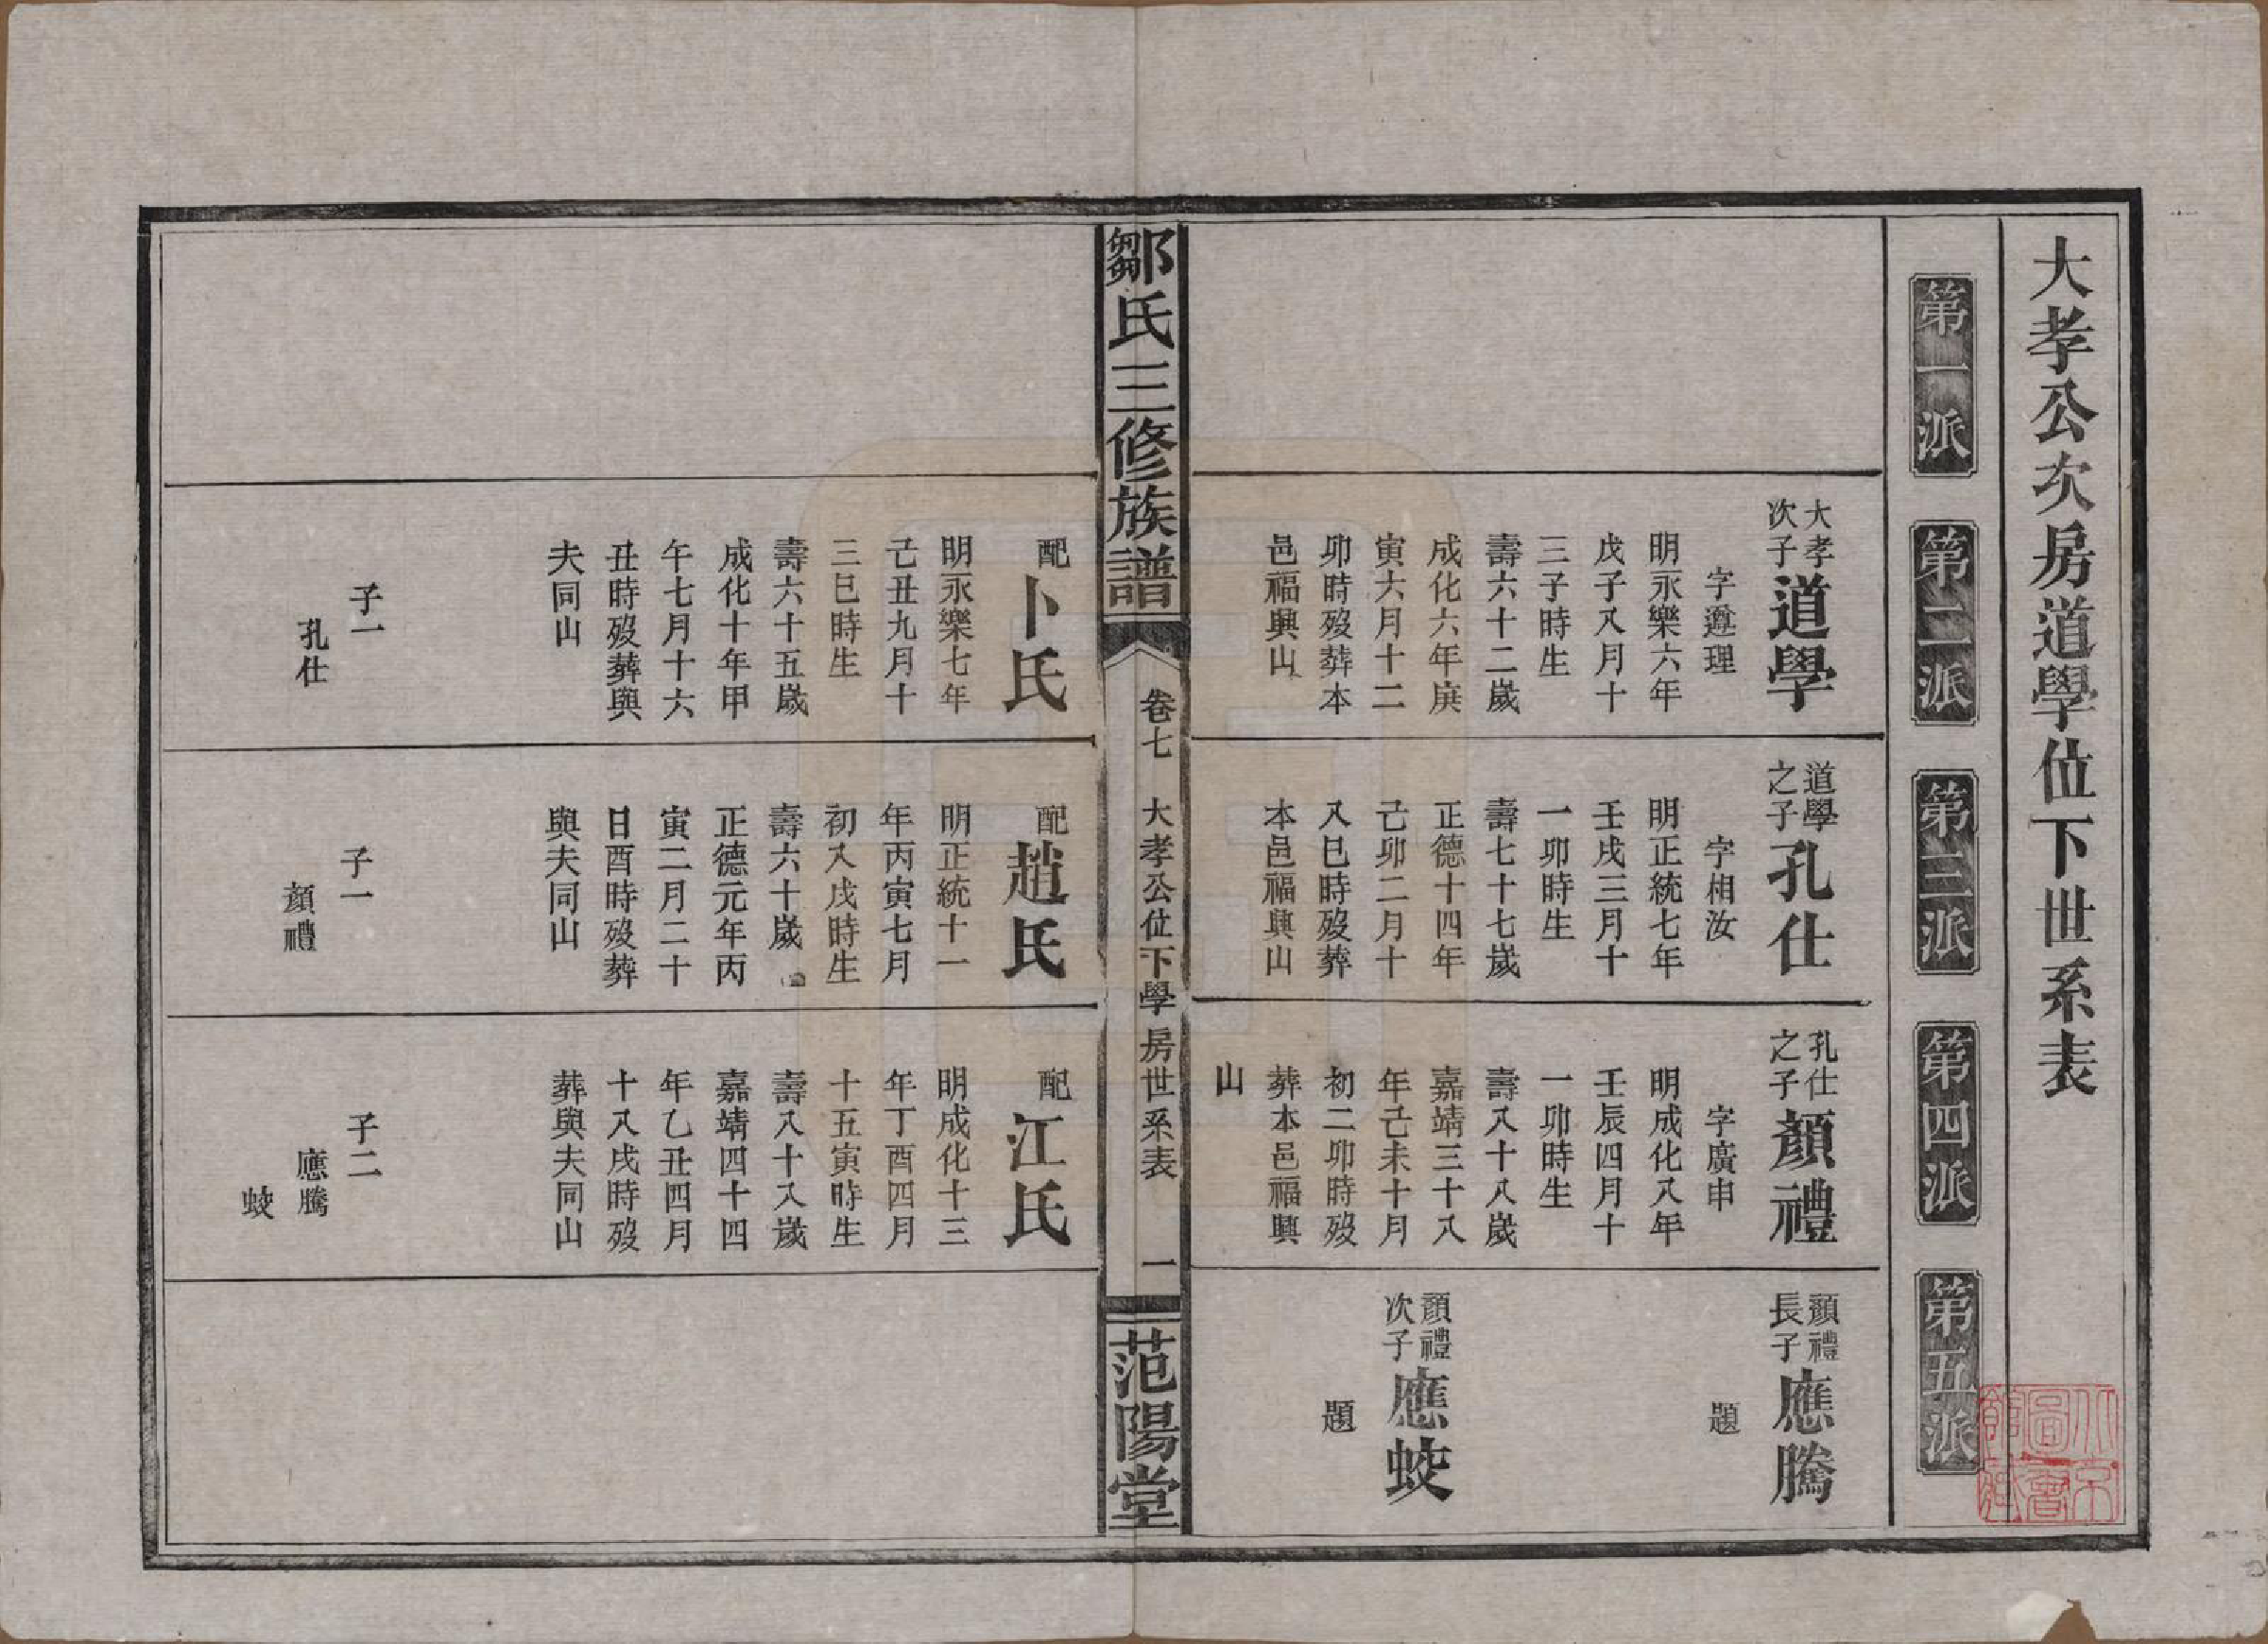 大孝公次房道學位下世系表
第一派
第二派
第三派
第四派
第五派
大孝
次子
道學
字遵理
明永樂六年
戊子八月十
三子時生
壽六十二歲
成化六年庚
寅六月十二
卯時歿葬本
邑福興山
道學
之子
孔仕
字相汝
明正統七年
壬戌三月十
一卯時生
壽七十七歲
正德十四年
己卯二月十
八巳時歿葬
本邑福興山
孔仕
之子
顏禮
字廣申
明成化八年
壬辰四月十
一卯時生
壽八十八歲
嘉靖三十八
年己未十月
初二卯時歿
葬本邑福興
山
顏禮
長子
應騰
題
顏禮
次子
應蛟
題
鄒氏三修族譜
卷七
大孝公位下學房世系表
一
范陽堂
配
卜氏
明永樂七年
己丑九月十
三巳時生
壽六十五歲
成化十年甲
午七月十六
丑時歿葬與
夫同山
子一
孔仕
配
趙氏
明正統十一
年丙寅七月
初八戌時生
壽六十歲
正德元年丙
寅二月二十
日酉時歿葬
與夫同山
子一
顏禮
配
江氏
明成化十三
年丁酉四月
十五寅時生
壽八十八歲
嘉靖四十四
年乙丑四月
十八戌時歿
葬與夫同山
子二
應騰
蛟